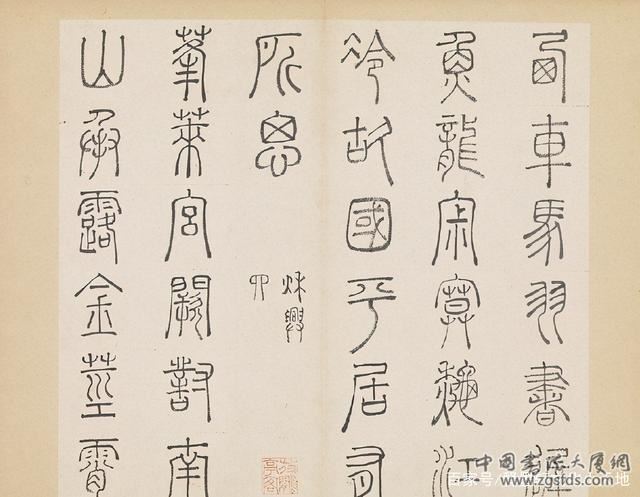 西車馬羽書遲
魚龍寂寞秋江
冷故國平居有
所思
秋興
四
蓬萊宮闕對南
山承露金莖霄
中国书法大厦网
www.zgsfds.com
百家号